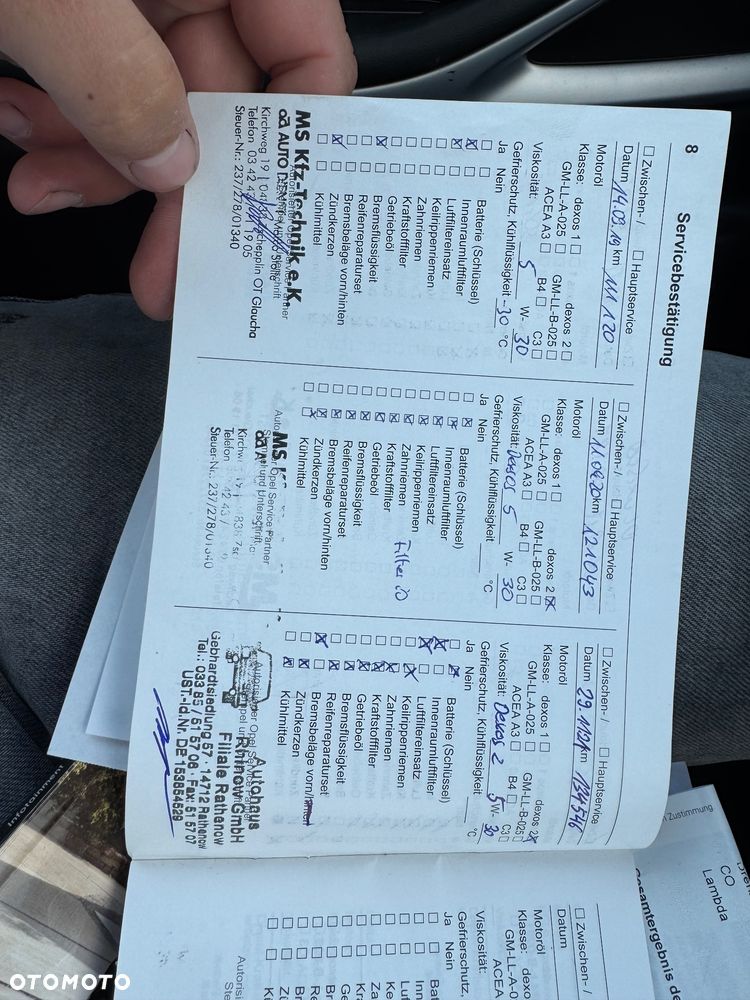 8
Servicebestätigung
Zwischen-/ Hauptservice
Datum 14.03.19 km 111 120
Motoröl
Klasse: dexos 1 dexos 2
GM-LL-A-025 GM-LL-B-025
ACEA A3 B4 C3
Viskosität: 5 W- 30
Gefrierschutz, Kühlflüssigkeit -30 °C
Ja Nein
Batterie (Schlüssel)
Innenraumluftfilter
Luftfiltereinsatz
Keilrippenriemen
Zahnriemen
Kraftstofffilter
Getriebeöl
Bremsflüssigkeit
Reifenreparaturset
Bremsbeläge vorn/hinten
Zündkerzen
Kühlmittel
MS Kfz-Technik e.K.
AUTO DIENST
Kirchweg 19
Zschepplin OT Glaucha
Telefon 03 42
19 05
Steuer-Nr.: 237/278/01340
Zwischen-/ Hauptservice
Datum 11.08.20 km 121043
Motoröl
Klasse: dexos 1 dexos 2
GM-LL-A-025 GM-LL-B-025
ACEA A3 B4 C3
Viskosität: Dexos 5 W- 30
Gefrierschutz, Kühlflüssigkeit °C
Ja Nein
Batterie (Schlüssel)
Innenraumluftfilter
Luftfiltereinsatz
Keilrippenriemen
Zahnriemen
Kraftstofffilter
Getriebeöl
Bremsflüssigkeit
Reifenreparaturset
Bremsbeläge vorn/hinten
Zündkerzen
Kühlmittel
Opel Service Partner
MS
Steuer-Nr.: 237/278/01340
Zwischen-/ Hauptservice
Datum 29.11.21 km 134546
Motoröl
Klasse: dexos 1 dexos 2
GM-LL-A-025 GM-LL-B-025
ACEA A3 B4 C3
Viskosität: Dexos 2 5 W- 30
Gefrierschutz, Kühlflüssigkeit °C
Ja Nein
Batterie (Schlüssel)
Innenraumluftfilter
Luftfiltereinsatz
Keilrippenriemen
Zahnriemen
Kraftstofffilter
Getriebeöl
Bremsflüssigkeit
Reifenreparaturset
Bremsbeläge vorn/hinten
Zündkerzen
Kühlmittel
Autorisierter Opel Service Partner
Autohaus
Rhinow GmbH
Filiale Rathenow
Gebhardtsiedlung 57 · 14712 Rathenow
Tel.: 033 85 / 51 57 06 · Fax: 51 57 07
UST.-Id.Nr. DE 155854629
Zwischen-/
Datum
Motoröl
Klasse: dexos 1
GM-LL-A-0
ACEA A3
Viskosität:
Gefrierschutz,
Ja Nein
Zustimmung
CO
Lambda
Gesamtergebnis de
Infotainment
OTOMOTO